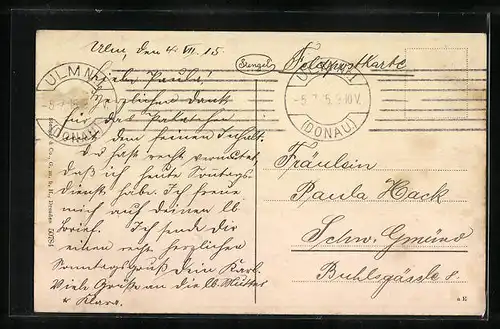 Ulm, den 4. VII. 15
Liebe Paula!
Herzlichen Dank
für das Paketchen
dem feinen Inhalt.
Du hast recht vermutet,
daß ich heute Sonntags-
dienst habe. Ich freue
mich auf deinen lb.
Brief. Ich sende dir
einen recht herzlichen
Sonntagsgruß Dein Karl.
Viele Grüße an die lb. Mutter
u Klara.
Stengel
Feldpostkarte
ULM
(DONAU)
-5.7.15.9-10V.
(DONAU)
Fräulein
Paula Hack
Schw. Gmünd
Buhlgässle 8.
& Co., G. m. b. H., Dresden 50784